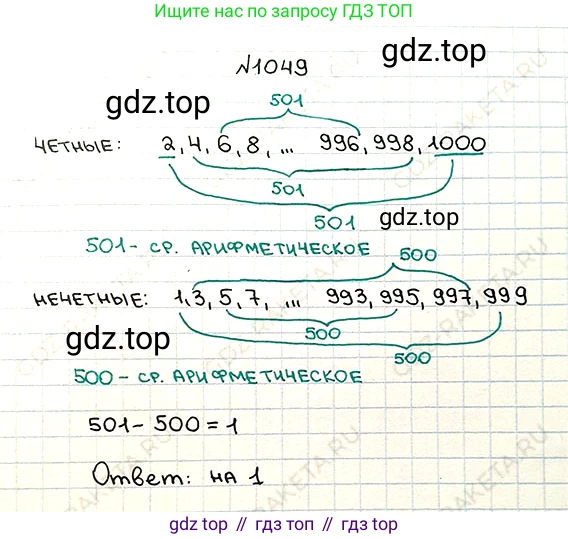 Ищите нас по запросу ГДЗ ТОП
№1049
gdz.top
501
ЧЕТНЫЕ: 2, 4, 6, 8, ... 996, 998, 1000
501
501
gdz.top
501 - СР. АРИФМЕТИЧЕСКОЕ
500
НЕЧЕТНЫЕ: 1, 3, 5, 7, ... 993, 995, 997, 999
gdz.top
500
500
500 - СР. АРИФМЕТИЧЕСКОЕ
501 - 500 = 1
Ответ: НА 1
gdz top // гдз топ // gdz.top